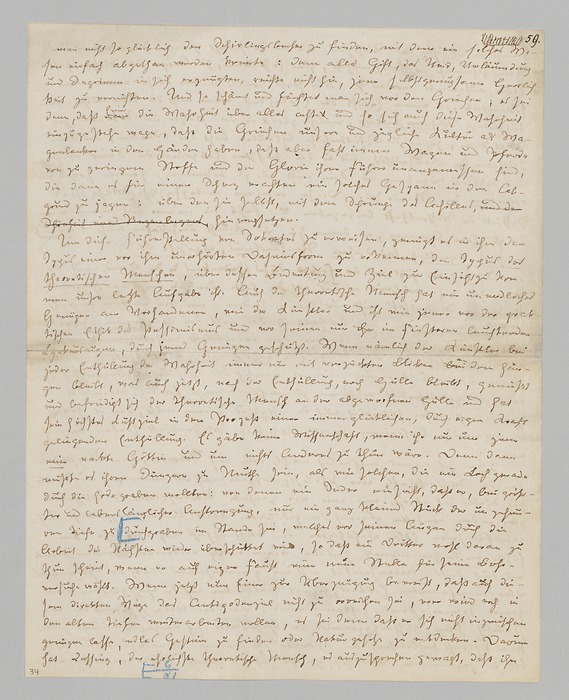 59.
man nicht so glücklich den Schierlingsbecher zu finden, mit dem ein solches We-
sen einfach abgethan werden könnte: denn alles Gift, das Neid, Verläumdung
und Ingrimm in sich erzeugten, reichte nicht hin, jene selbstgenugsame Herrlich-
keit zu vernichten. Und so schämt und fürchtet man sich vor den Griechen; es sei
denn, daß Einer die Wahrheit über alles achte und so sich auch diese Wahrheit
einzugestehn wage, daß die Griechen unsere und jegliche Kultur als Wa-
genlenker in den Händen haben, daß aber fast immer Wagen und Pferde
von zu geringem Stoffe und der Glorie ihrer Führer unangemessen sind,
die dann es für einen Scherz erachten, ein solches Gespann in den Ab-
grund zu jagen: über den sie selbst, mit dem Sprunge des Achilles, und der
hinwegsetzen.
Um diese Führerstellung von Sokrates zu erweisen, genügt es in ihm den
Typus einer vor ihm unerhörten Daseinsform zu erkennen, den Typus des
theoretischen Menschen, über dessen Bedeutung und Ziel zur Einsicht zu kom-
men unsre letzte Aufgabe ist. Auch der theoretische Mensch hat ein unendliches
Genügen am Vorhandenen, wie der Künstler und ist wie jener vor der prak-
tischen Ethik des Pessimismus und vor seinen nur im Finsteren leuchtenden
Lynkeusaugen, durch jenes Genügen geschützt. Wenn nämlich der Künstler bei
jeder Enthüllung der Wahrheit immer nur mit verzückten Blicken an dem hän-
gen bleibt, was auch jetzt, nach der Enthüllung, noch Hülle bleibt, genießt
und befriedigt sich der theoretische Mensch an der abgeworfnen Hülle und hat
sein höchstes Lustziel in dem Prozeß einer immer glücklichen, durch eigene Kraft
gelingenden Enthüllung. Es gäbe keine Wissenschaft, wenn ihr nur um jene
eine nackte Göttin und um nichts Anderes zu thun wäre. Denn dann
müßte es ihren Jüngern zu Muthe sein, als wie solchen, die ein Loch gerade
durch die Erde graben wollten: von denen ein Jeder einsieht, daß er, bei größ-
ter und lebenslänglicher Anstrengung, nur ein ganz kleines Stück der ungeheu-
ren Tiefe zu durchgraben im Stande sei, welches vor seinen Augen durch die
Arbeit des Nächsten wieder überschüttet wird, so daß ein Dritter wohl daran zu
thun scheint, wenn er auf eigne Faust eine neue Stelle für seine Bohr-
versuche wählt. Wenn jetzt nun Einer zur Überzeugung beweist, daß auf die-
sem direkten Wege das Antipodenziel nicht zu erreichen sei, wer wird noch in
den alten Tiefen weiterarbeiten wollen, es sei denn daß er sich nicht inzwischen
genügen lasse, edles Gestein zu finden oder Naturgesetze zu entdecken. Darum
hat Lessing, der ehrlichste theoretische Mensch, es auszusprechen gewagt, daß ihm
34